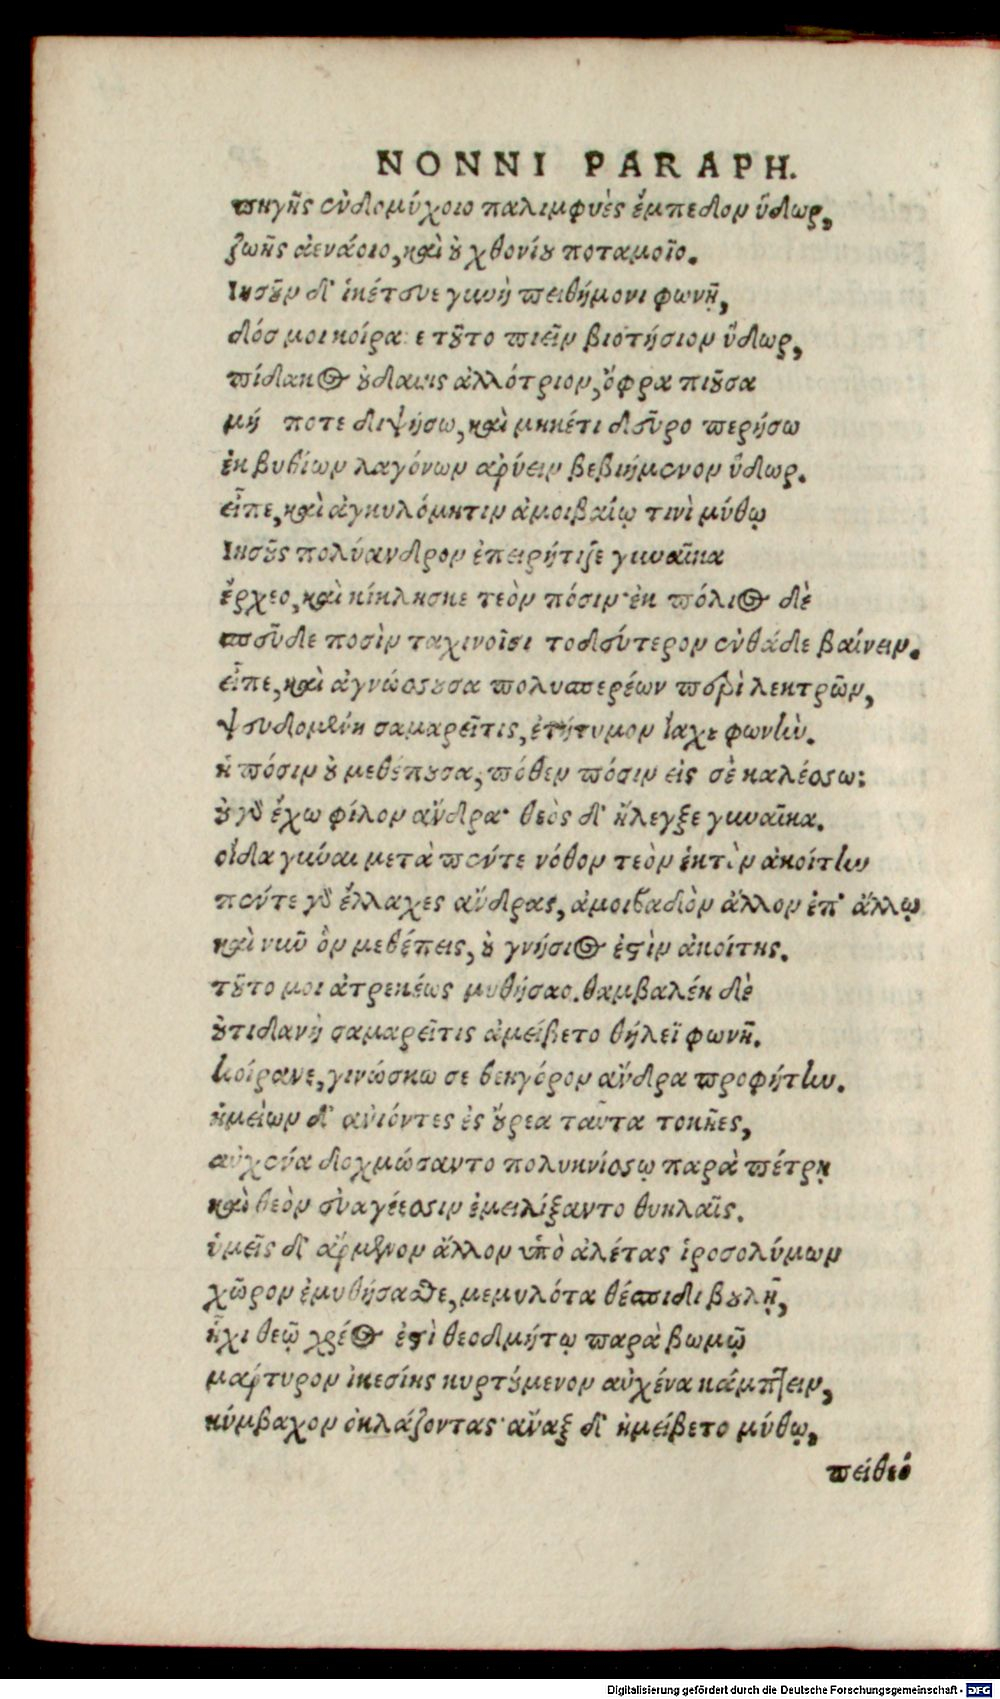 NONNI PARAPH.
πηγῆς ἐνδομύχοιο παλιμφυὲς ἔμπεδον ὕδωρ,
ζωῆς ἀενάοιο, καὶ οὐ χθονίου ποταμοῖο.
Ἰησοῦν δ' ἱκέτευε γυνὴ πειθήμονι φωνῇ,
δός μοι κοίρα ε τοῦτο πιεῖν βιοτήσιον ὕδωρ,
πίδακος οὐδαίης ἀλλότριον, ὄφρα πιοῦσα
μή ποτε διψήσω, καὶ μηκέτι δεῦρο περήσω
ἐκ βυθίων λαγόνων ἀρύειν βεβιήμενον ὕδωρ.
εἶπε, καὶ ἀγκυλόμητιν ἀμοιβαίῳ τινὶ μύθῳ
Ἰησοῦς πολύανδρον ἐπειρήτιζε γυναῖκα
ἔρχεο, καὶ κίκλησκε τεὸν πόσιν· ἐκ πόλιος δὲ
σπεῦδε ποσὶν ταχινοῖσι τοδεύτερον ἐνθάδε βαίνειν.
εἶπε, καὶ ἀγνώσσουσα πολυσπερέων περὶ λεκτρῶν,
ψευδομένη σαμαρεῖτις, ἐτήτυμον ἴαχε φωνήν.
ἡ πόσιν οὐ μεθέπουσα, πόθεν πόσιν εἰς σὲ καλέσσω;
οὐ γὰρ ἔχω φίλον ἄνδρα· θεὸς δ' ἤλεγξε γυναῖκα.
οἶδα γύναι μετὰ πέντε νόθον τεὸν ἑκτὸν ἀκοίτην
πέντε γὰρ ἔλλαχες ἄνδρας, ἀμοιβαδὶὸν ἄλλον ἐπ' ἄλλῳ
καὶ νῦν ὃν μεθέπεις, οὐ γνήσιος ἐστὶν ἀκοίτης.
τοῦτο μοι ἀτρεκέως μυθήσαο. θαμβαλέη δὲ
οὐτιδανὴ σαμαρεῖτις ἀμείβετο θήλεϊ φωνῇ.
κοίρανε, γινώσκω σε θεηγόρον ἄνδρα προφήτην.
ἡμείων δ' ἀνιόντες ἐς οὔρεα ταῦτα τοκῆες,
αὐχένα δοχμώσαντο πολυκνίσσῳ παρὰ πέτρῃ
καὶ θεὸν εὐαγέεσσιν ἐμειλίξαντο θυηλαῖς.
ὑμεῖς δ' ἄρμενον ἄλλον ὑπὸ ἀλέτας ἱροσολύμων
χῶρον ἐμυθήσασθε, μεμυλότα θέσπιδι βουλῇ,
ᾗχι θεῷ χρέος ἐστὶ θεοδμήτῳ παρὰ βωμῷ
μάρτυρον ἱκεσίης κυρτούμενον αὐχένα κάμπτειν,
κύμβαχον ὀκλάζοντας· ἄναξ δ' ἠμείβετο μύθῳ,
πείθεό
Digitalisierung gefördert durch die Deutsche Forschungsgemeinschaft - DFG